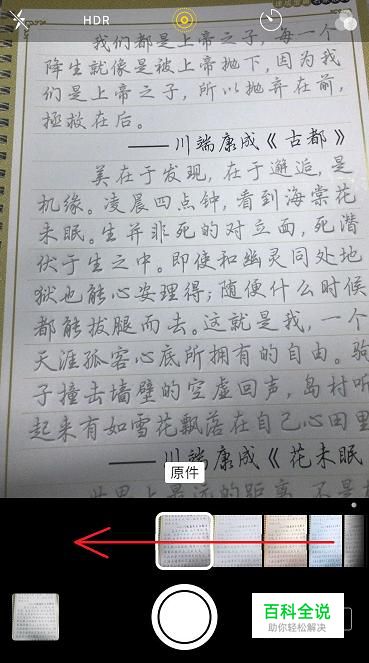 HDR
我们都是上帝之子，每一个
降生就像是被上帝抛下，因为我
们是上帝之子，所以抛弃在前，
拯救在后。
——川端康成《古都》
美在于发现，在于邂逅，是
机缘。凌晨四点钟，看到海棠花
未眠。生并非死的对立面，死潜
伏于生之中。即使和幽灵同处地
狱也能心安理得；随便什么时候
都能拔腿而去。这就是我，一个
天涯孤客心底所拥有的自由。骑
子撞击墙壁的空虚回声，岛村听
起来有如雪花飘落在自己心田里
——川端康成《花未眠
世界上最远的距离，不是
原件
百科全说
助你轻松解决